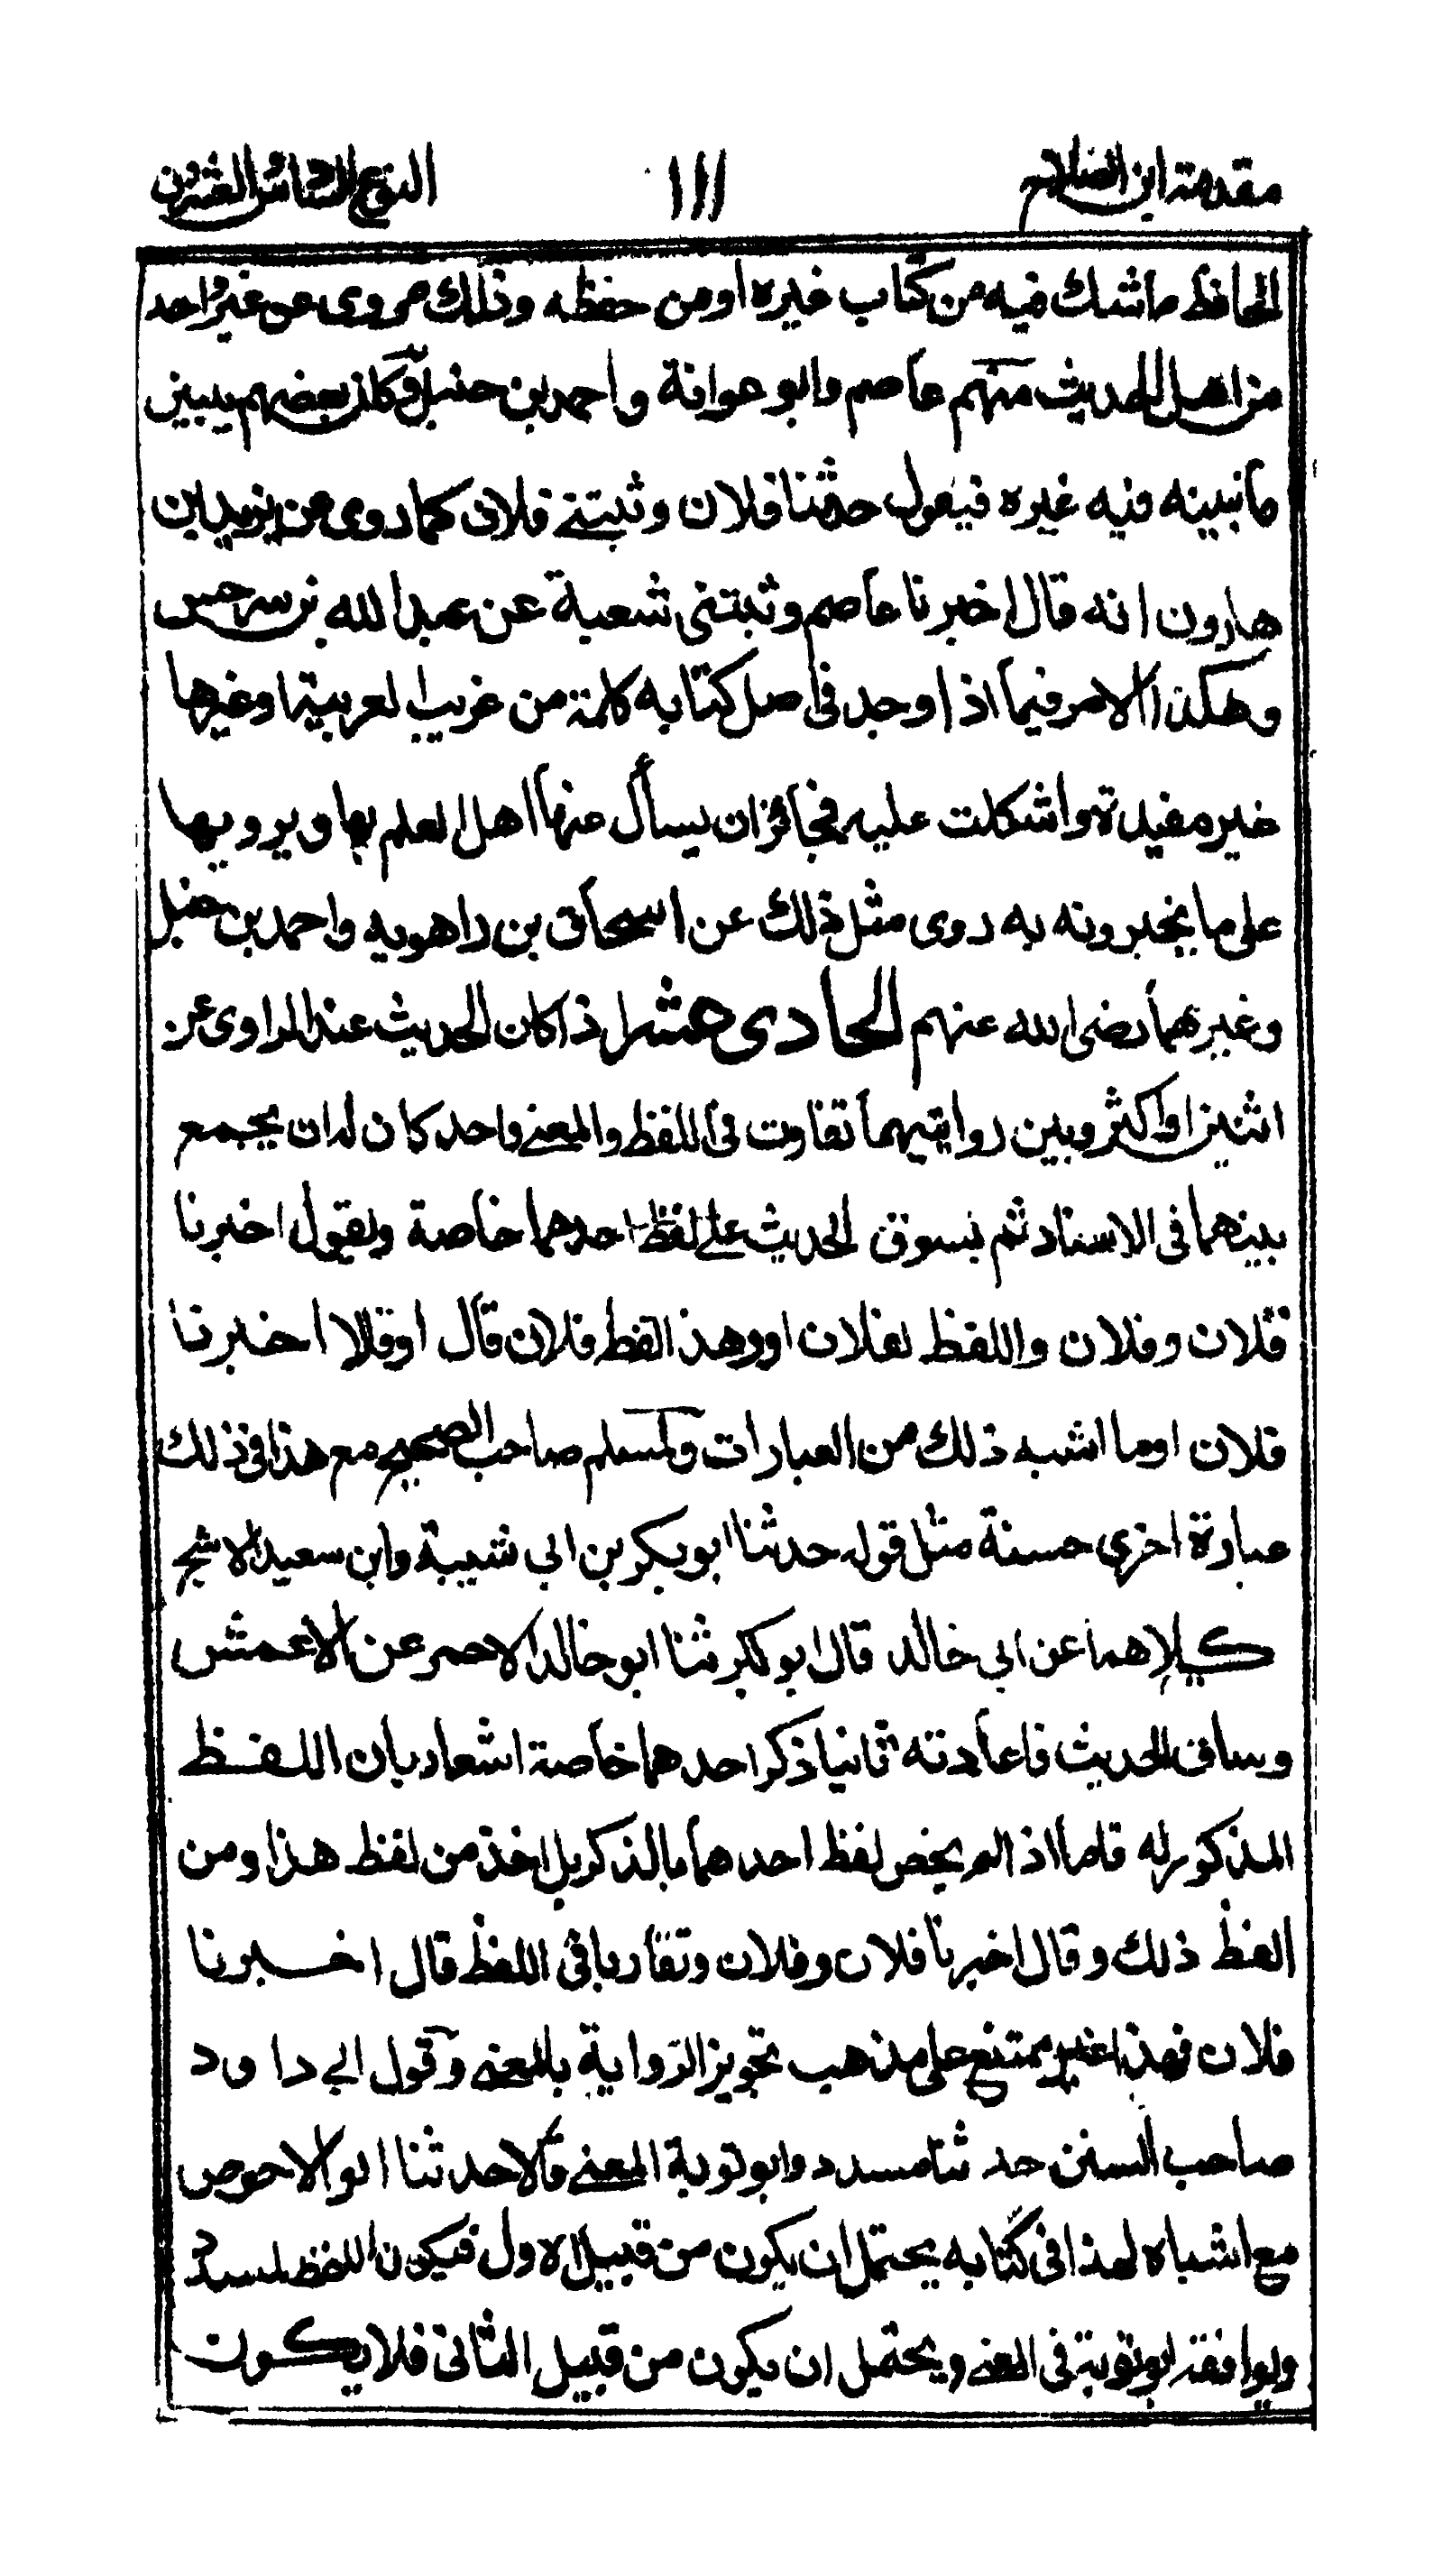 مقدمة ابن الصلاح ١١١ النوع السادس العشرون
الحافظ ما شك فيه من كتاب غيره او من حفظه وذلك مروى عن غير واحد
من اهل الحديث منهم عاصم وابو عوانة واحمد بن حنبل وكان بعضهم يبين
ما نبينه فيه غيره فيقول حدثنا فلان وثبتنے فلان كما روى عن يزيد بن
هارون انه قال اخبرنا عاصم وثبتنى شعبة عن عبد الله بن سرجس
وهكذا الامر فيما اذا وجد فى اصل كتابه كلمة من غريب العربية او غيرها
غير مقيدة واشكلت عليه فجائز ان يسأل عنها اهل العلم بها ويرويها
على ما يخبرونه به روى مثل ذلك عن اسحاق بن راهويه واحمد بن حنبل
وغيرهما رضى الله عنهم الحادى عشر اذا كان الحديث عند الراوى عن
اثنين او اكثر وبين روايتيهما تفاوت فى اللفظ والمعنے واحد كان له ان يجمع
بينهما فى الاسناد ثم يسوق الحديث علے لفظ احدهما خاصة ويقول اخبرنا
فلان وفلان واللفظ لفلان او وهذا لفظ فلان قال او قالا اخبرنا
فلان او ما اشبه ذلك من العبارات ولمسلم صاحب الصحيح مع هذا فى ذلك
عبارة اخرى حسنة مثل قوله حدثنا ابو بكر بن ابي شيبة وابن سعيد الاشج
كلاهما عن ابي خالد قال ابو بكر ثنا ابو خالد الاحمر عن الاعمش
وساق الحديث فاعادته ثانيا ذكر احدهما خاصة اشعار بان اللفظ
المذكور له فاما اذا لم يخص لفظ احدهما بالذكر بل اخذ من لفظ هذا ومن
لفظ ذلك وقال اخبرنا فلان وفلان وتقاربا فى اللفظ قال اخبرنا
فلان فهذا غير ممتنع على مذهب تجويز الرواية بالمعنے وقول ابي داود
صاحب السنن حدثنا مسدد وابو توبة المعنے قالا حدثنا ابو الاحوص
مع اشباه لهذا فى كتابه يحتمل ان يكون من قبيل الاول فيكون اللفظ لمسدد
ويوافقه ابو توبة فى المعنے ويحتمل ان يكون من قبيل الثانى فلا يكون